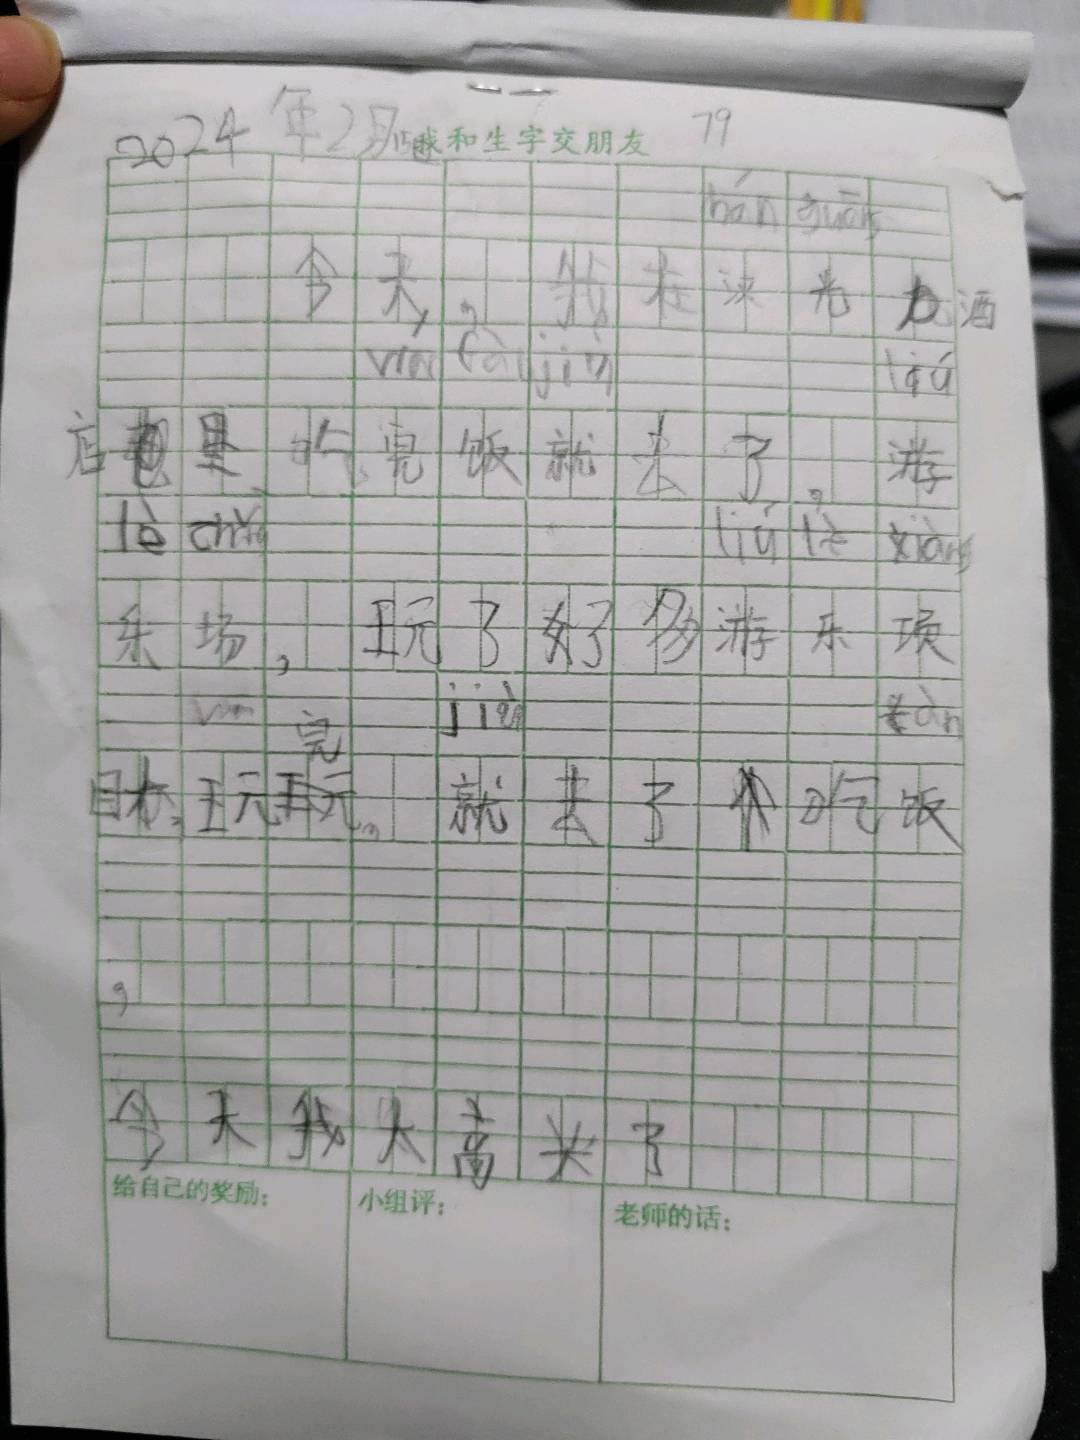 2024年2月15日 我和生字交朋友 79
guāng
今天，我在 光 酒
wán fàn jiù liú
店里吃完饭就去了，游
lè chǎng liú lè xiàng
乐场，玩了好多游乐项
完 jiù
目标，玩完，就去了 吃饭
，
今天我太高兴了
给自己的奖励： 小组评： 老师的话：